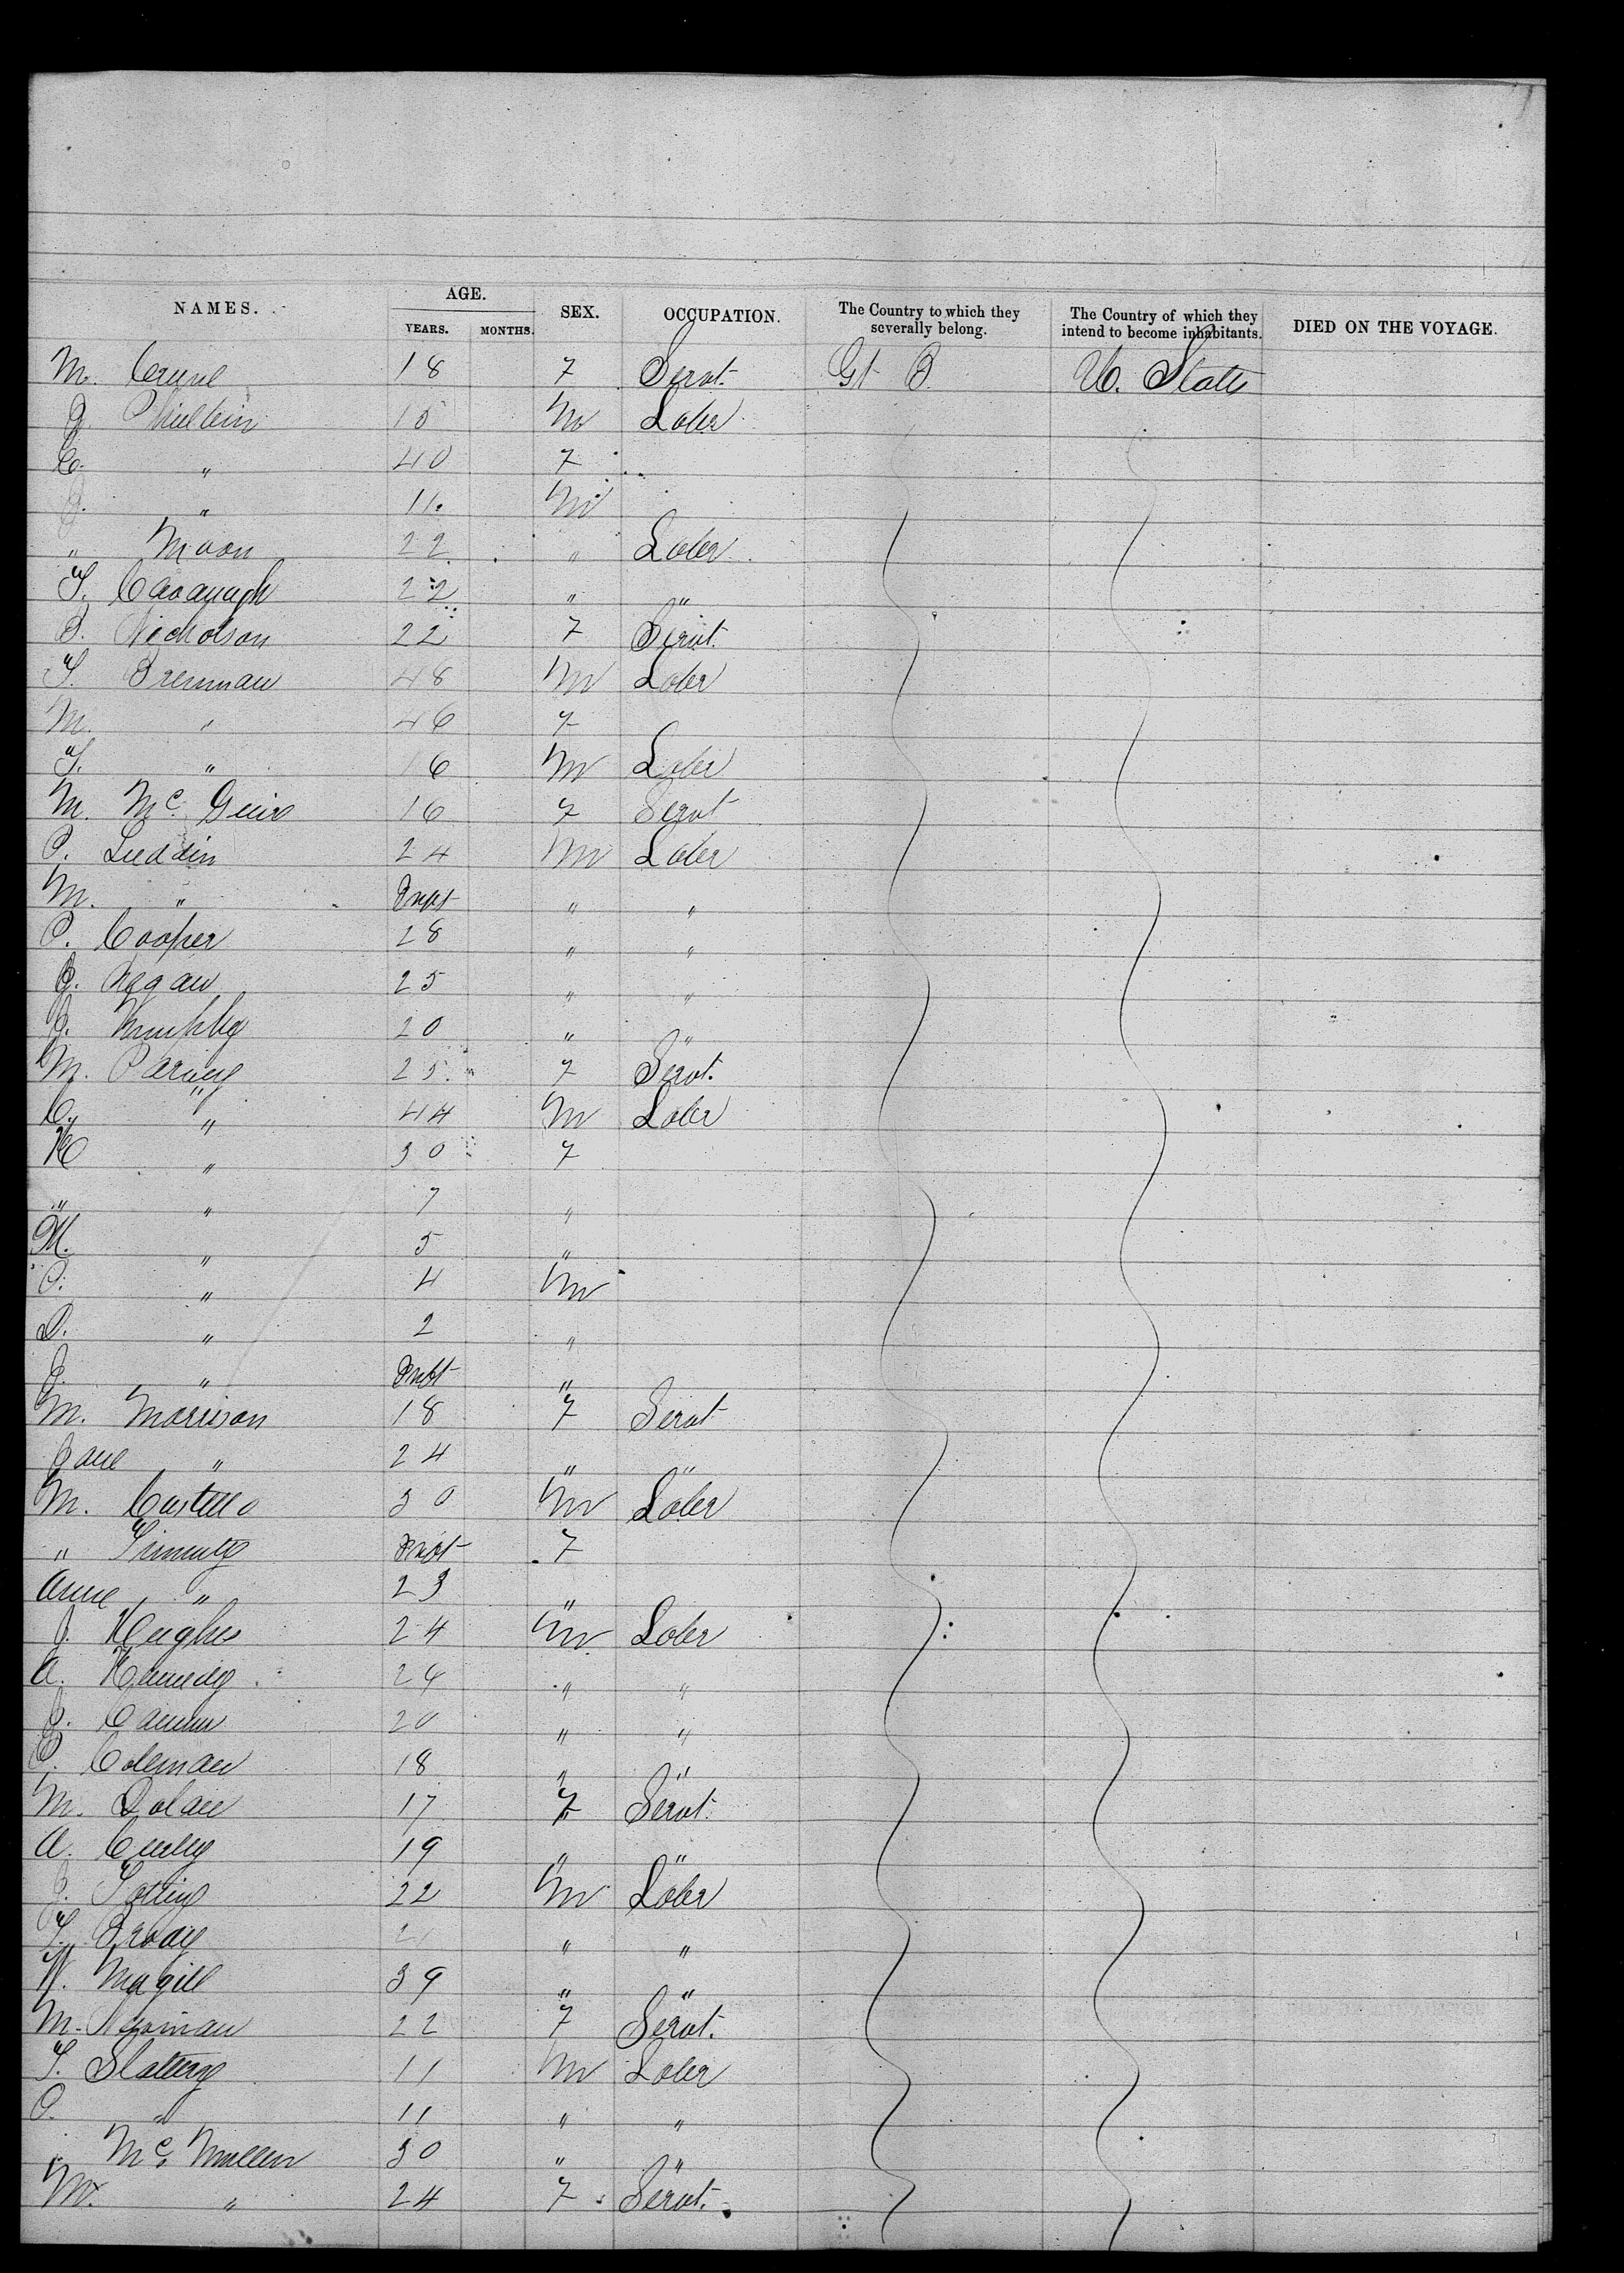 NAMES. AGE. SEX. OCCUPATION. The Country to which they severally belong. The Country of which they intend to become inhabitants. DIED ON THE VOYAGE.
YEARS. MONTHS.
M. 18 F Servt. Gt B. U. States
J. 15 M Laber
C. " 40 F
J. " 11 M
" Moon 22 " Laber
T. Cavanagh 22 " "
B. Nicholson 22 F Servt.
T. Brennan 48 M Laber
M. " 46 F
T. " 16 M Laber
M. Mc Guire 16 F Servt
P. Leddin 24 M Laber
M. " Inft " "
P. Cooper 28 " "
J. Hagan 25 " "
J. Murphy 20 " "
M. 25 F Servt.
C. " 44 M Laber
K " 30 F
" " 7 "
M. " 5 "
P. " 4 M
D. " 2 "
J. " Inft "
M. Morrison 18 F Servt
Jane " 24 " "
M. Costello 30 M Laber
" Inft F
Anne " 23 "
J. Hughes 24 M Laber
A. Kennedy 24 " "
J. 20 " "
P. Coleman 18 " "
M. Dolan 17 F Servt.
A. Curley 19 " "
J. 22 M Laber
T. Brody 21 " "
W. Magill 39 " "
M. 22 F Servt.
T. Slattery 11 M Laber
P. " 11 " "
" Mc Mullen 30 " "
M. " 24 F Servt.